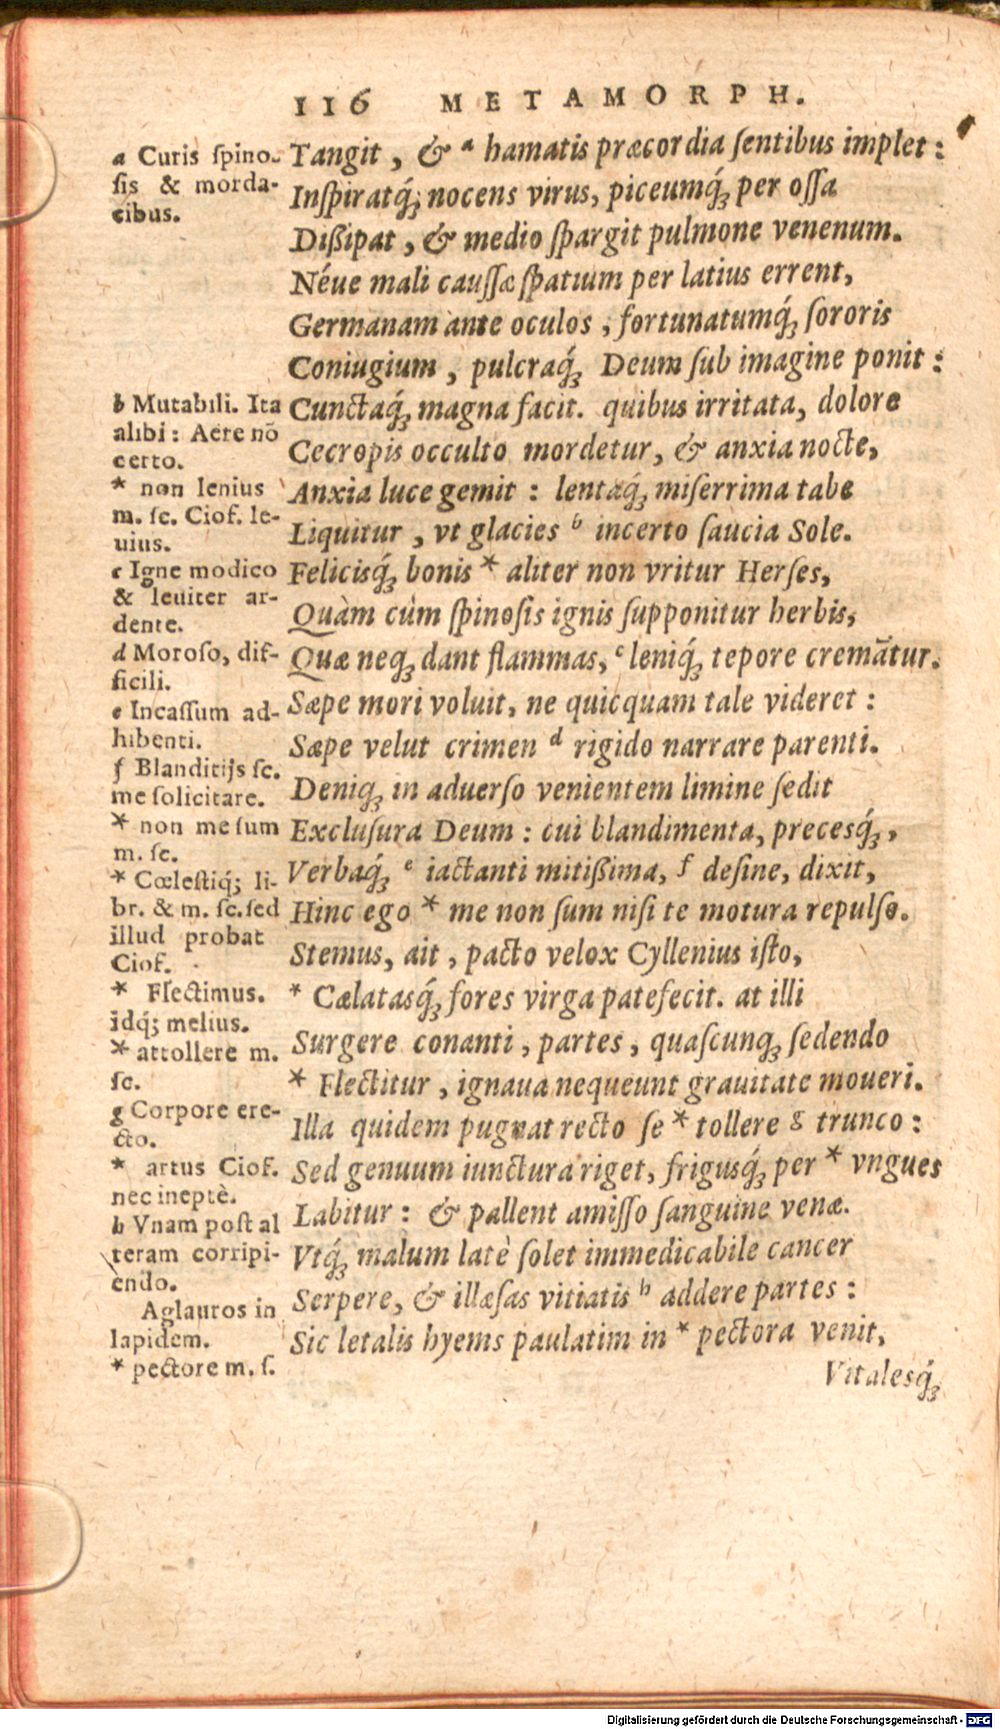 116 METAMORPH.
Tangit, & a hamatis præcordia ſentibus implet:
Inſpiratq́; nocens virus, piceumq́; per oſſa
Dißipat, & medio ſpargit pulmone venenum.
Néue mali cauſſæ ſpatium per latius errent,
Germanam ante oculos, fortunatumq́; ſororis
Coniugium, pulcraq́; Deum ſub imagine ponit:
Cunctaq́; magna facit. quibus irritata, dolore
Cecropis occulto mordetur, & anxia nocte,
Anxia luce gemit: lentaq́; miſerrima tabe
Liquitur, vt glacies b incerto ſaucia Sole.
Felicisq́; bonis * aliter non vritur Herſes,
Quàm cùm ſpinoſis ignis ſupponitur herbis,
Quæ neq; dant flammas, c leniq́; tepore cremātur.
Sæpe mori voluit, ne quicquam tale videret:
Sæpe velut crimen d rigido narrare parenti.
Deniq; in aduerſo venientem limine ſedit
Excluſura Deum: cui blandimenta, precesq́;,
Verbaq́; e iactanti mitißima, f deſine, dixit,
Hinc ego * me non ſum niſi te motura repulſo.
Stemus, ait, pacto velox Cyllenius iſto,
* Cælatasq́; fores virga patefecit. at illi
Surgere conanti, partes, quaſcunq; ſedendo
* Flectitur, ignaua nequeunt grauitate moueri.
Illa quidem pugnat recto ſe * tollere g trunco:
Sed genuum iunctura riget, frigusq́; per * vngues
Labitur: & pallent amiſſo ſanguine venæ.
Vtq́; malum latè ſolet immedicabile cancer
Serpere, & illæſas vitiatis h addere partes:
Sic letalis hyems paulatim in * pectora venit,
Vitalesq́;
a Curis ſpino-
ſis & morda-
cibus.
b Mutabili. Ita
alibi: Aere nō
certo.
* non lenius
m. ſc. Ciof. le-
uius.
c Igne modico
& leuiter ar-
dente.
d Moroſo, dif-
ficili.
e Incaſſum ad-
hibenti.
f Blanditijs ſc.
me ſolicitare.
* non me ſum
m. ſc.
* Cœleſtiq́; li-
br. & m. ſc. ſed
illud probat
Ciof.
* Flectimus.
idq́; melius.
* attollere m.
ſc.
g Corpore ere-
cto.
* artus Ciof.
nec ineptè.
h Vnam poſt al
teram corripi-
endo.
Aglauros in
lapidem.
* pectore m. ſ.
Digitalisierung gefördert durch die Deutsche Forschungsgemeinschaft - DFG